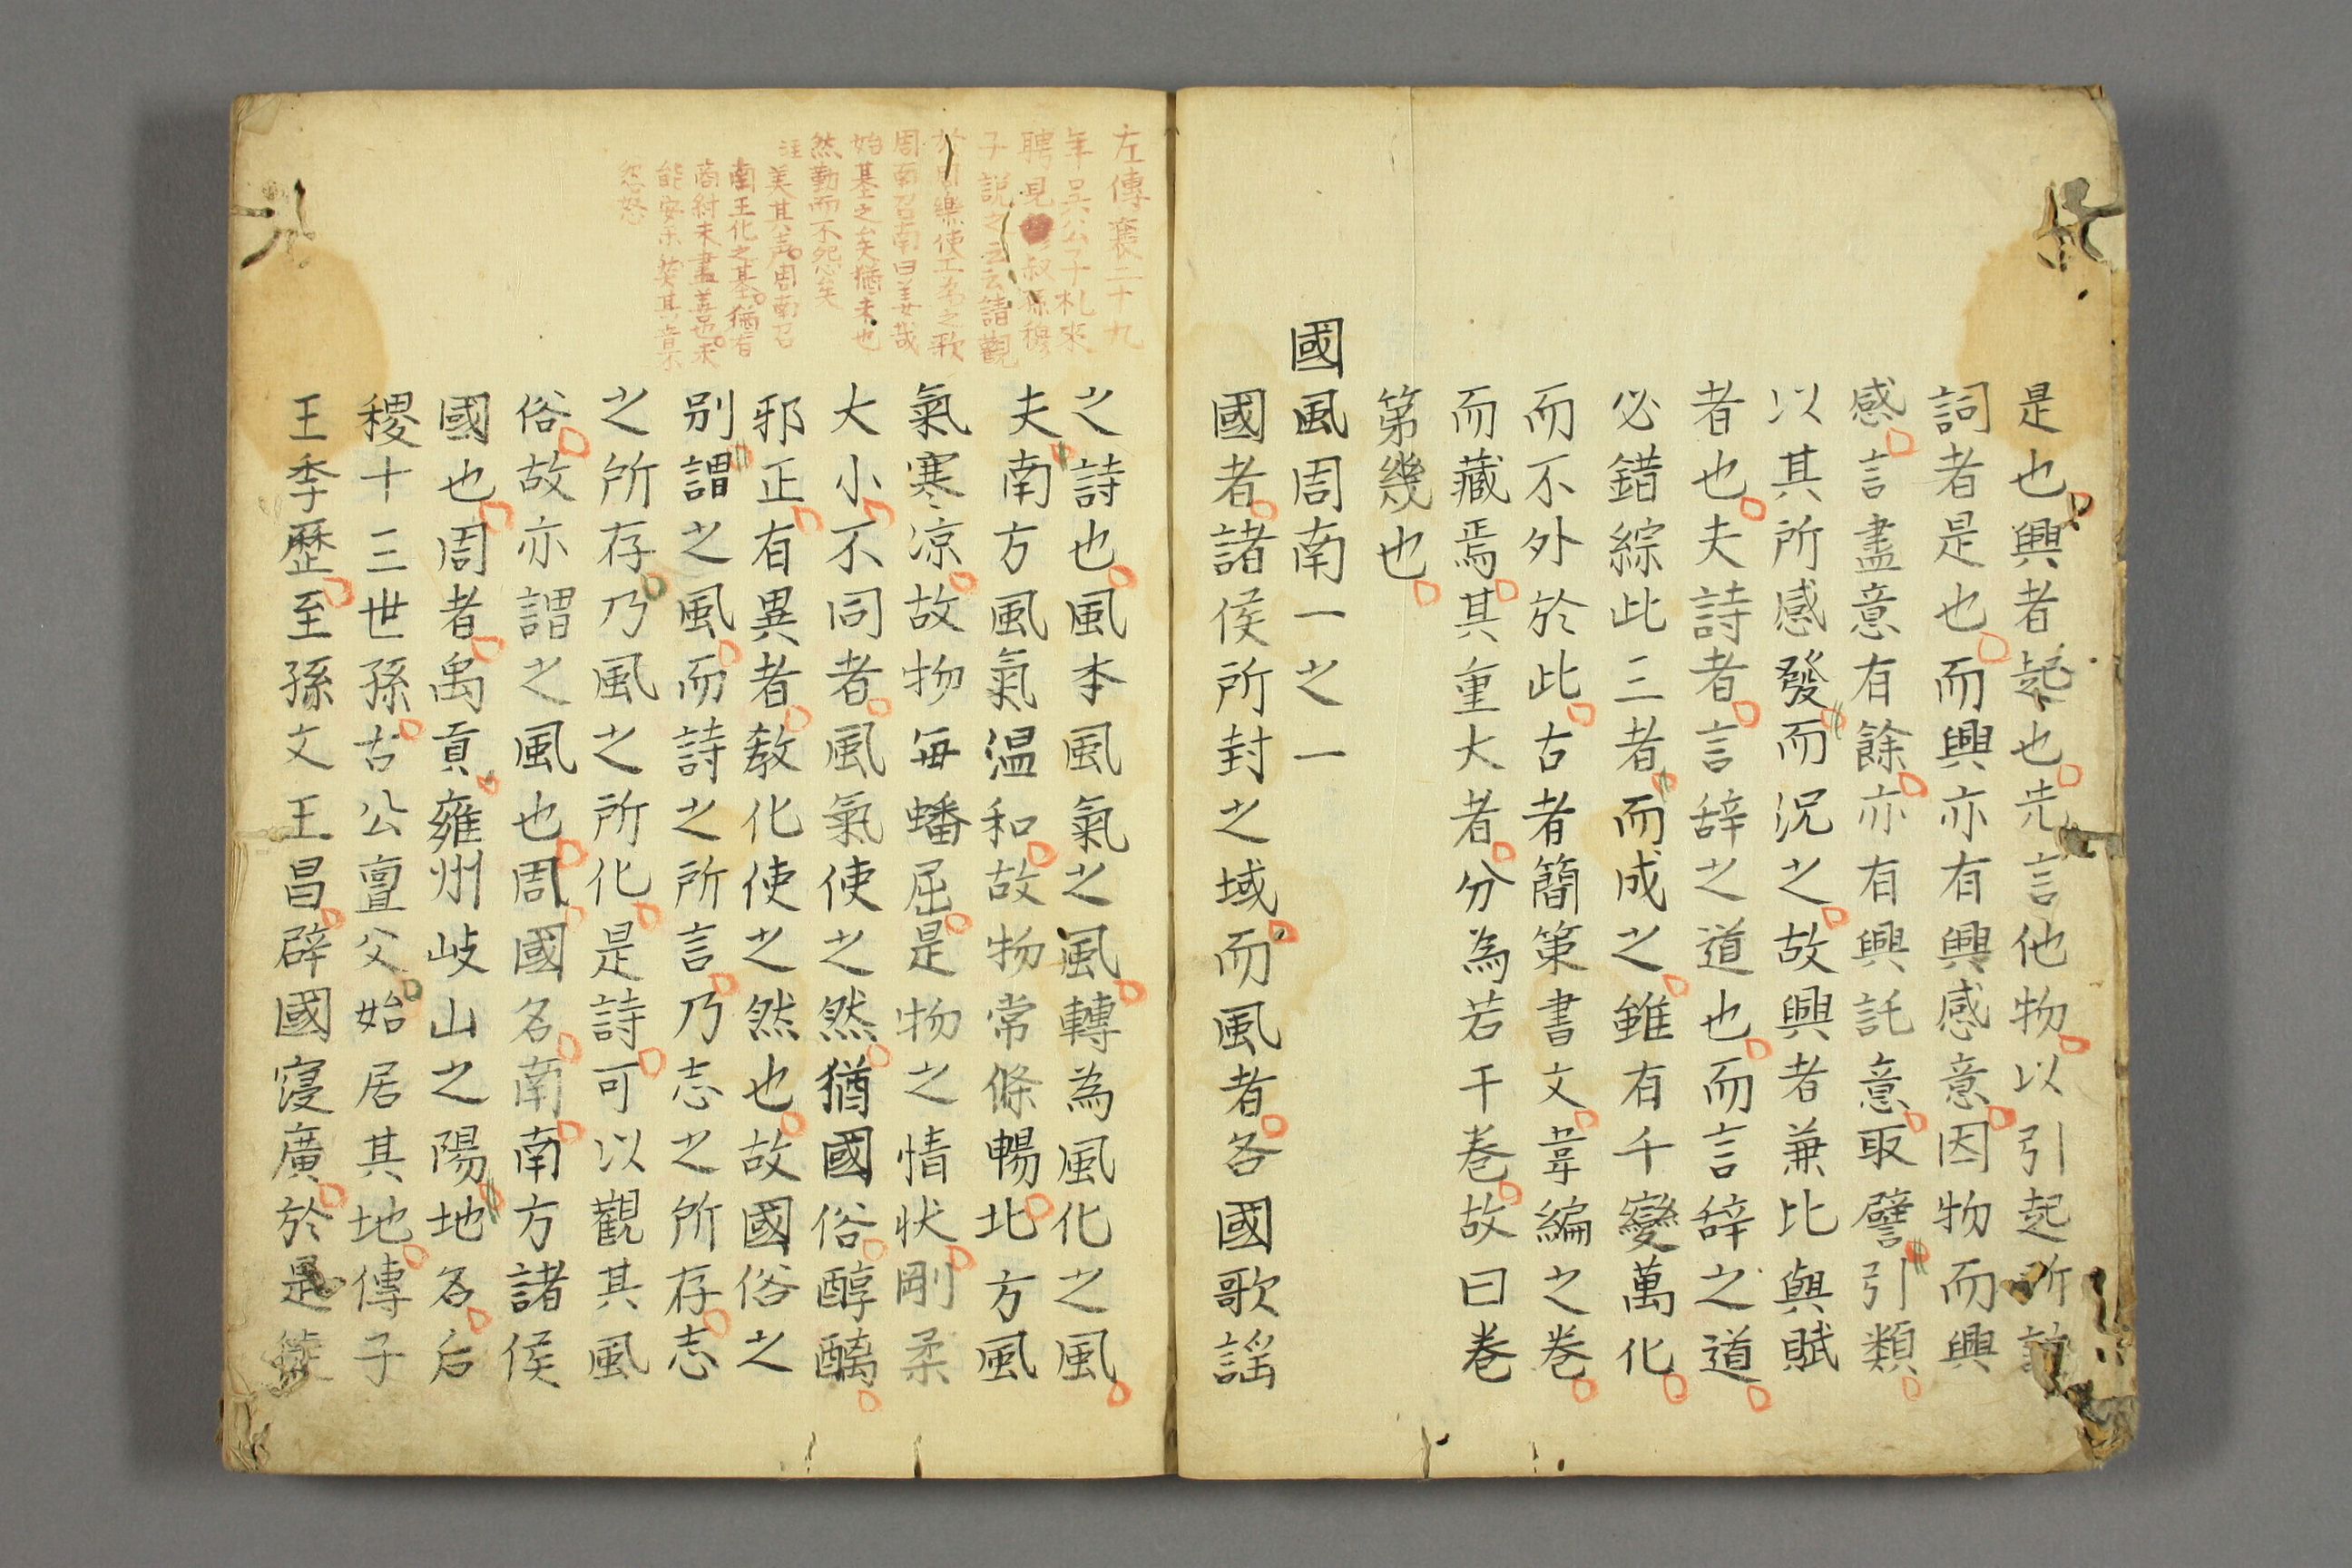 是也興者起也先言他物以引起所詠
詞者是也而興亦有興感意因物而興
感言盡意有餘亦有興託意取譬引類
以其所感發而況之故興者兼比與賦
者也夫詩者言辞之道也而言辞之道
必錯綜此三者而成之雖有千變萬化
而不外於此古者簡策書文韋編之巻
而藏焉其重大者分為若干巻故曰巻
第幾也
國風周南一之一
國者諸侯所封之域而風者各國歌謡
左傳襄二十九
年呉公子札來
聘見叔孫穆
子説之云云請觀
於周樂使工為之歌
周南召南曰美哉
始基之矣猶未也
然勤而不怨矣
注美其声周南召
南王化之基猶有
商紂未盡善也未
能安樂其音不
怨怒
之詩也風本風氣之風轉為風化之風
夫南方風氣温和故物常條暢北方風
氣寒凉故物毎蟠屈是物之情状剛柔
大小不同者風氣使之然猶國俗醇醨
邪正有異者教化使之然也故國俗之
别謂之風而詩之所言乃志之所存志
之所存乃風之所化是詩可以觀其風
俗故亦謂之風也周國名南南方諸侯
國也周者禹貢雍州岐山之陽地名后
稷十三世孫古公亶父始居其地傳子
王季歴至孫文王昌辟國寖廣於是徙